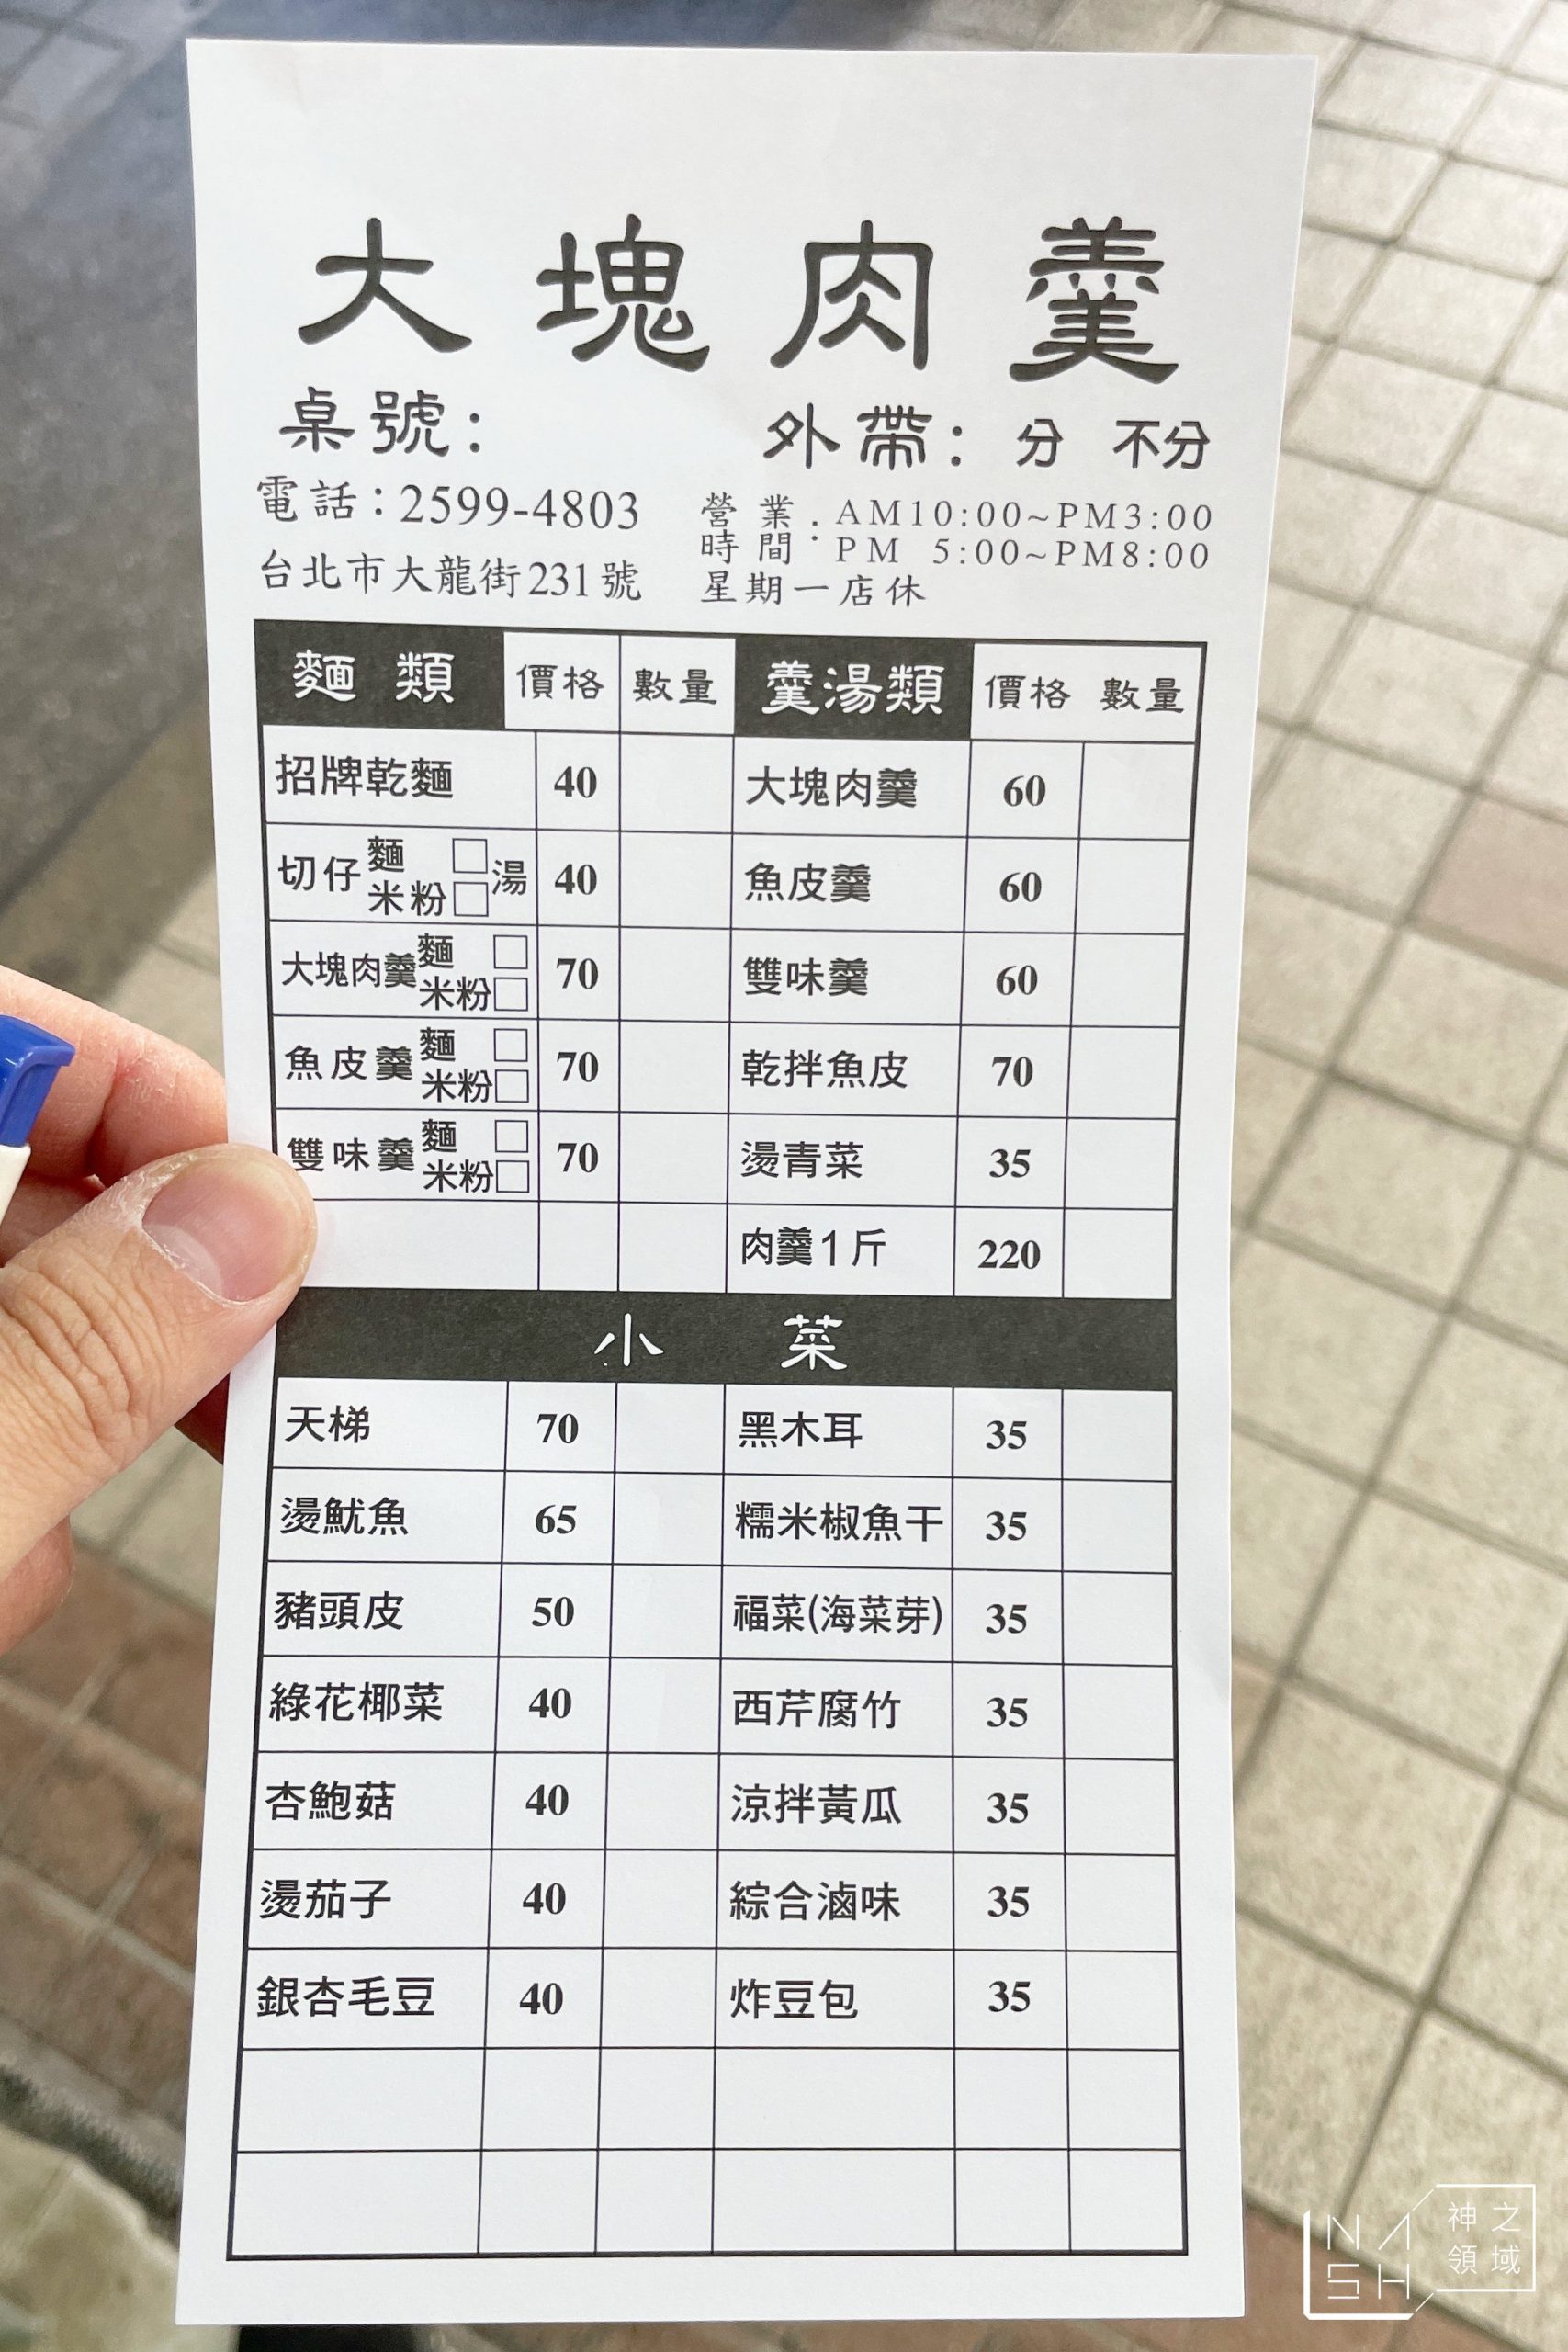 大塊肉羹
桌號：
外帶：分 不分
電話：2599-4803
台北市大龍街231號
營業時間：AM10:00~PM3:00
PM 5:00~PM8:00
星期一店休
麵類 價格 數量 羹湯類 價格 數量
招牌乾麵 40 大塊肉羹 60
切仔麵□米粉□湯 40 魚皮羹 60
大塊肉羹麵□米粉□ 70 雙味羹 60
魚皮羹麵□米粉□ 70 乾拌魚皮 70
雙味羹麵□米粉□ 70 燙青菜 35
肉羹1斤 220
小菜
天梯 70 黑木耳 35
燙魷魚 65 糯米椒魚干 35
豬頭皮 50 福菜(海菜芽) 35
綠花椰菜 40 西芹腐竹 35
杏鮑菇 40 涼拌黃瓜 35
燙茄子 40 綜合滷味 35
銀杏毛豆 40 炸豆包 35
NASH
神之領域